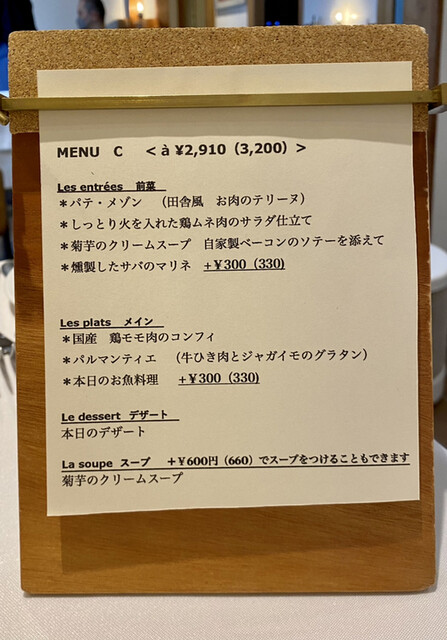 MENU C < à ¥2,910（3,200）>
Les entrées 前菜
＊パテ・メゾン （田舎風 お肉のテリーヌ）
＊しっとり火を入れた鶏ムネ肉のサラダ仕立て
＊菊芋のクリームスープ 自家製ベーコンのソテーを添えて
＊燻製したサバのマリネ +￥300（330）
Les plats メイン
＊国産 鶏モモ肉のコンフィ
＊パルマンティエ （牛ひき肉とジャガイモのグラタン）
＊本日のお魚料理 +￥300（330）
Le dessert デザート
本日のデザート
La soupe スープ ＋￥600円（660）でスープをつけることもできます
菊芋のクリームスープ